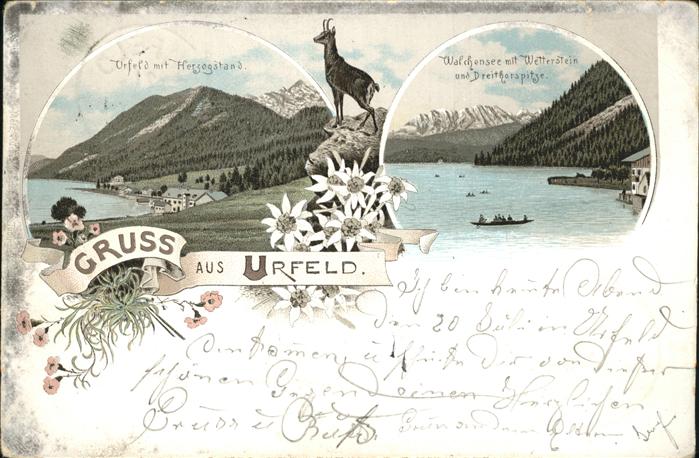 Urfeld mit Herzogstand.
Walchensee mit Wetterstein
und Dreithorspitze.
GRUSS AUS URFELD.
Ich bin heute Abend
den 20 Juli in Urfeld
u. dir von dieser
schönen Gegend einen Herzlichen
Gruss u